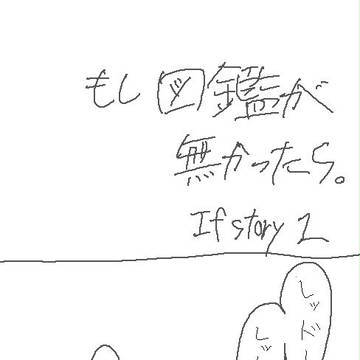 もし図鑑が
無かったら。
If story 1
レッドー
レッ